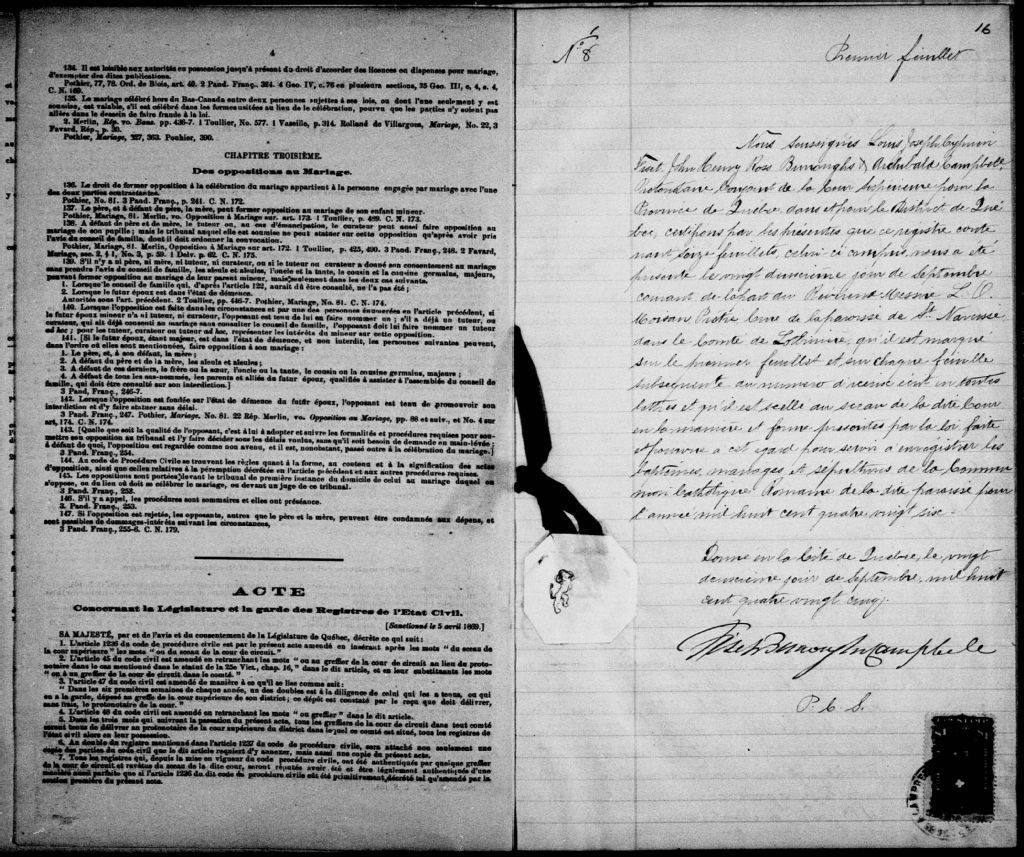 4
134. Il est loisible aux autorités en possession jusqu'à présent du droit d'accorder des licences ou dispenses pour mariage,
d'exempter des dites publications.
Pothier, 77, 78. Ord. de Blois, art. 40. 2 Pand. Franç. 324. 4 Geo. IV, c. 76 en plusieurs sections, 35 Geo. III, c, 4, s. 4.
C. N. 169.
135. Le mariage célébré hors du Bas-Canada entre deux personnes sujettes à ses lois, ou dont l'une seulement y est
soumise, est valable, s'il est célébré dans les formes usitées au lieu de la célébration, pourvu que les parties n'y soient pas
allées dans le dessein de faire fraude à la loi.
2. Merlin, Rép. vo. Bans. pp. 436-7. 1 Toullier, No. 577. 1 Vazeille, p. 314. Rolland de Villargues, Mariage, No. 22, 3
Favard, Rép., p. 30.
Pothier, Mariage, 327, 363. Pouhier, 390.
CHAPITRE TROISIÈME.
Des oppositions au Mariage.
136. Le droit de former opposition à la célébration du mariage appartient à la personne engagée par mariage avec l'une
des deux parties contractantes.
Pothier, No. 81. 3 Pand. Franç., p. 241. C. N. 172.
137. Le père, et à défaut du père, la mère, peut former opposition au mariage de son enfant mineur.
Pothier, Mariage, 81. Merlin, vo. Opposition à Mariage sur art. 173. 1 Toullier, p. 489. C. N. 173.
138. A défaut de père et de mère, le tuteur, ou, au cas d'émancipation, le curateur peut aussi faire opposition au
mariage de son pupille; mais le tribunal auquel elle est soumise ne peut statuer sur cette opposition qu'après avoir pris
l'avis du conseil de famille, dont il doit ordonner la convocation.
Pothier, Mariage, 81. Merlin, Opposition à Mariage sur art. 172. 1 Toullier, p. 425, 490. 3 Pand. Franç., 248. 2 Favard,
Mariage, sec. 2, § 1, No. 3, p. 59. 1 Delv. p. 62. C. N. 175.
139. S'il n'y a ni père, ni mère, ni tuteur, ni curateur, ou si le tuteur ou curateur a donné son consentement au mariage
sans prendre l'avis du conseil de famille, les aïeuls et aïeules, l'oncle et la tante, le cousin et la cousine germains, majeurs,
peuvent former opposition au mariage de leur parent mineur, mais seulement dans les deux cas suivants.
1. Lorsque le conseil de famille qui, d'après l'article 122, aurait dû être consulté, ne l'a pas été;
2. Lorsque le futur époux est dans l'état de démence.
Autorités sous l'art. précédent. 2 Toullier, pp. 446-7. Pothier, Mariage, No. 81. C. N. 174.
140. Lorsque l'opposition est faite dans les circonstances et par une des personnes énumérées en l'article précédent, si
le futur époux mineur n'a ni tuteur, ni curateur, l'opposant est tenu de lui en faire nommer un; s'il a déjà un tuteur, ou
curateur, qui ait déjà consenti au mariage sans consulter le conseil de famille, l'opposant doit lui faire nommer un tuteur
ad hoc; pour les tuteur, curateur ou tuteur ad hoc, représenter les intérêts du mineur sur cette opposition.
141. [Si le futur époux, étant majeur, est dans l'état de démence, et non interdit, les personnes suivantes peuvent,
dans l'ordre où elles sont mentionnées, faire opposition à son mariage:
1. Le père, et, à son défaut, la mère;
2. A défaut du père et de la mère, les aïeuls et aïeules;
3. A défaut de ces derniers, le frère ou la sœur, l'oncle ou la tante, le cousin ou la cousine germains, majeurs;
4. A défaut de tous les sus-nommés, les parents et alliés du futur époux, qualifiés à assister à l'assemblée du conseil de
famille, qui doit être consulté sur son interdiction.]
3 Pand. Franç., 246-7.
142. Lorsque l'opposition est fondée sur l'état de démence du futur époux, l'opposant est tenu de promouvoir son
interdiction et d'y faire statuer sans délai.
3 Pand. Franç., 247. Pothier, Mariage, No. 81. 22 Rép. Merlin, vo. Opposition au Mariage, pp. 88 et suiv., et No. 4 sur
art. 174. C. N. 174.
143. [Quelle que soit la qualité de l'opposant, c'est à lui à adopter et suivre les formalités et procédures requises pour soumettre son opposition au tribunal et l'y faire décider sous les délais voulus, sans qu'il soit besoin de demande en main-levée;
à défaut de quoi, l'opposition est regardée comme non avenu, et il est, nonobstant, passé outre à la célébration du mariage.]
3 Pand. Franç., 254.
144. Au code de Procédure Civile se trouvent les règles quant à la forme, au contenu et à la signification des actes
d'opposition, ainsi que celles relatives à la péremption décrétée en l'article précédent et aux autres procédures requises.
145. Les oppositions sont portées devant le tribunal de première instance du domicile de celui au mariage duquel on
s'oppose, ou du lieu où doit se célébrer le mariage, ou devant un juge de ce tribunal.
3 Pand. Franç., 253.
146. S'il y a appel, les procédures sont sommaires et elles ont préséance.
3 Pand. Franç., 253.
147. Si l'opposition est rejetée, les opposants, autres que le père et la mère, peuvent être condamnés aux dépens, et
sont passibles de dommages-intérêts suivant les circonstances,
3 Pand. Franç., 255-6. C. N. 179.
ACTE
Concernant la Législature et la garde des Registres de l'Etat Civil.
[Sanctionné le 5 avril 1869.]
SA MAJESTÉ, par et de l'avis et du consentement de la Législature de Québec, décrète ce qui suit:
1. L'article 1236 du code de procédure civile est par le présent acte amendé en insérant après les mots "du sceau de
la cour supérieure" les mots "ou du sceau de la cour de circuit."
2. L'article 45 du code civil est amendé en retranchant les mots "ou au greffier de la cour de circuit au lieu du protonotaire dans le cas mentionné dans le statut de la 25e Vict., chap. 16," dans le dit article, et en leur substituant les mots
"ou à un greffier de la cour de circuit dans le comté."
3. L'article 47 du code civil est amendé de manière à ce qu'il se lise comme suit:
"Dans les six premières semaines de chaque année, un des doubles est à la diligence de celui qui les a tenus, ou qui
en a la garde, déposé au greffe de la cour supérieure de son district; ce dépôt est constaté par le reçu que doit délivrer,
sans frais, le protonotaire de la cour."
4. L'article 48 du code civil est amendé en retranchant les mots "ou greffier" dans le dit article.
5. Dans les trois mois qui suivront la passation du présent acte, tous les greffiers de la cour de circuit dans tout comté
seront tenus de délivrer au protonotaire de la cour supérieure du district dans lequel ce comté est situé, tous les registres de
l'état civil alors en leur possession.
6. Au double du registre mentionné dans l'article 1237 du code de procédure civile, sera attaché non seulement une
copie des parties du code civil que le dit article requiert d'y annexer, mais aussi une copie du présent acte.
7. Tous les registres qui, depuis la mise en vigueur du code procédure civile, ont été authentiqués par quelque greffier
de la cour de circuit et revêtus du sceau de la dite cour, seront réputés avoir été et être légalement authentiqués d'une
manière aussi parfaite que si l'article 1236 du dit code de procédure civile eût été primitivement décrété tel qu'amendé par la
section première du présent acte.
No 8
16
Premier feuillet
Nous soussignés Louis Joseph Cyprien
Fiset, John Henry Rose Burroughs & Archibald Campbell,
Protonotaire Conjoint de la Cour Supérieure pour la
Province de Québec, dans et pour le District de Qué
bec, certifions par les présentes que ce registre conte
nant seize feuillets, celui-ci compris, nous a été
présenté le vingt deuxième jour de Septembre
courant de la part du Révérend Messire L. O.
Prêtre Curé de la paroisse de St. Narcisse
dans le Comté de Lotbinière, qu'il est marqué
sur le premier feuillet et sur chaque feuille
subséquente du numéro d'icelui écrit en toutes
lettres et qu'il est scellé du sceau de la dite Cour
en la manière et forme prescrites par la loi faite
et pourvue à cet égard pour servir à enregistrer les
baptêmes, mariages et sépultures de la Commu
nion Catholique Romaine de la dite paroisse pour
l'année mil huit cent quatre vingt six.
Donné en la Cité de Québec, le vingt
deuxième jour de Septembre, mil huit
cent quatre vingt cinq.
Fiset Burroughs Campbell
P. C. S.